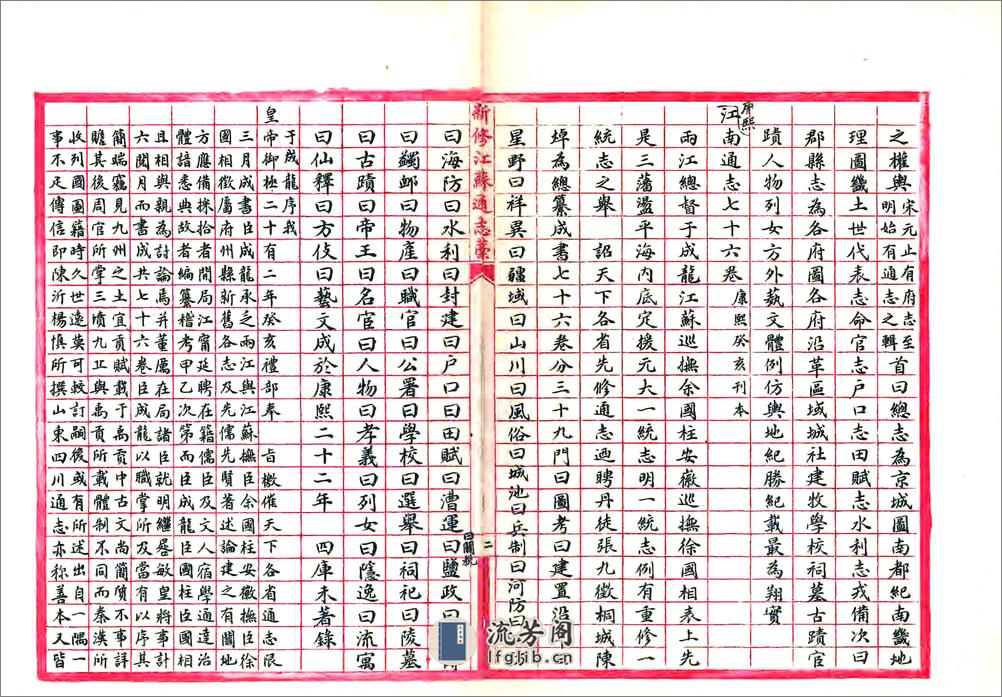 之權輿宋元止有府志至明始有通志之輯首曰總志為京城圖南都紀南畿地
理圖畿土世代表志命官志戶口志田賦志水利志戎備次曰
郡縣志為各府圖各府沿革區域城社建牧學校祠墓古蹟官
蹟人物列女方外藝文體例仿輿地紀勝紀載最為翔實
康熙江南通志七十六卷康熙癸亥刊本
兩江總督于成龍江蘇巡撫余國柱安徽巡撫徐國相表上先
是三藩盪平海內底定援元大一統志明一統志例有重修一
統志之舉 詔天下各省先修通志迺聘丹徒張九徵桐城陳
焯為總纂成書七十六卷分三十九門曰圖考曰建置沿
星野曰祥異曰疆域曰山川曰風俗曰城池曰兵制曰河防曰
新修江蘇通志藁 二
曰海防曰水利曰封建曰戶口曰田賦曰漕運曰關稅曰鹽政曰
曰蠲卹曰物產曰職官曰公署曰學校曰選舉曰祠祀曰陵墓
曰古蹟曰帝王曰名宦曰人物曰孝義曰列女曰隱逸曰流寓
曰仙釋曰方伎曰藝文成於康熙二十二年 四庫未著錄
于成龍序我
皇帝御極二十有二年癸亥禮部奉 旨檄催天下各省通志限
三月成書臣成龍承乏兩江與江蘇撫臣余國柱安徽撫臣徐
國相徵屬府州縣新舊各志及先儒先賢著述論建之有關地
方應備採拾者開局江甯延聘在籍儒臣及文人宿學通達治
體諳悉典故者編纂稽考甲乙次第而臣成龍臣國柱臣國相
且相與親為討論焉并屬在局諸臣就明繼晷敏皇將事計
六閱月而書成共七十六卷臣成龍以職掌所及當有以序其
簡端竊見九州之土宜貢賦載于禹貢中古文尚簡質不事詳
贍其後周官所掌三墳九丘與禹貢所載體制不同而秦漢所
收列國圖籍時久世遠莫可較訂嗣後或有所述出自一隅
事不足傳信即陳沂楊慎所撰山東四川通志亦称善本又皆一
流芳阁
lfglib.cn